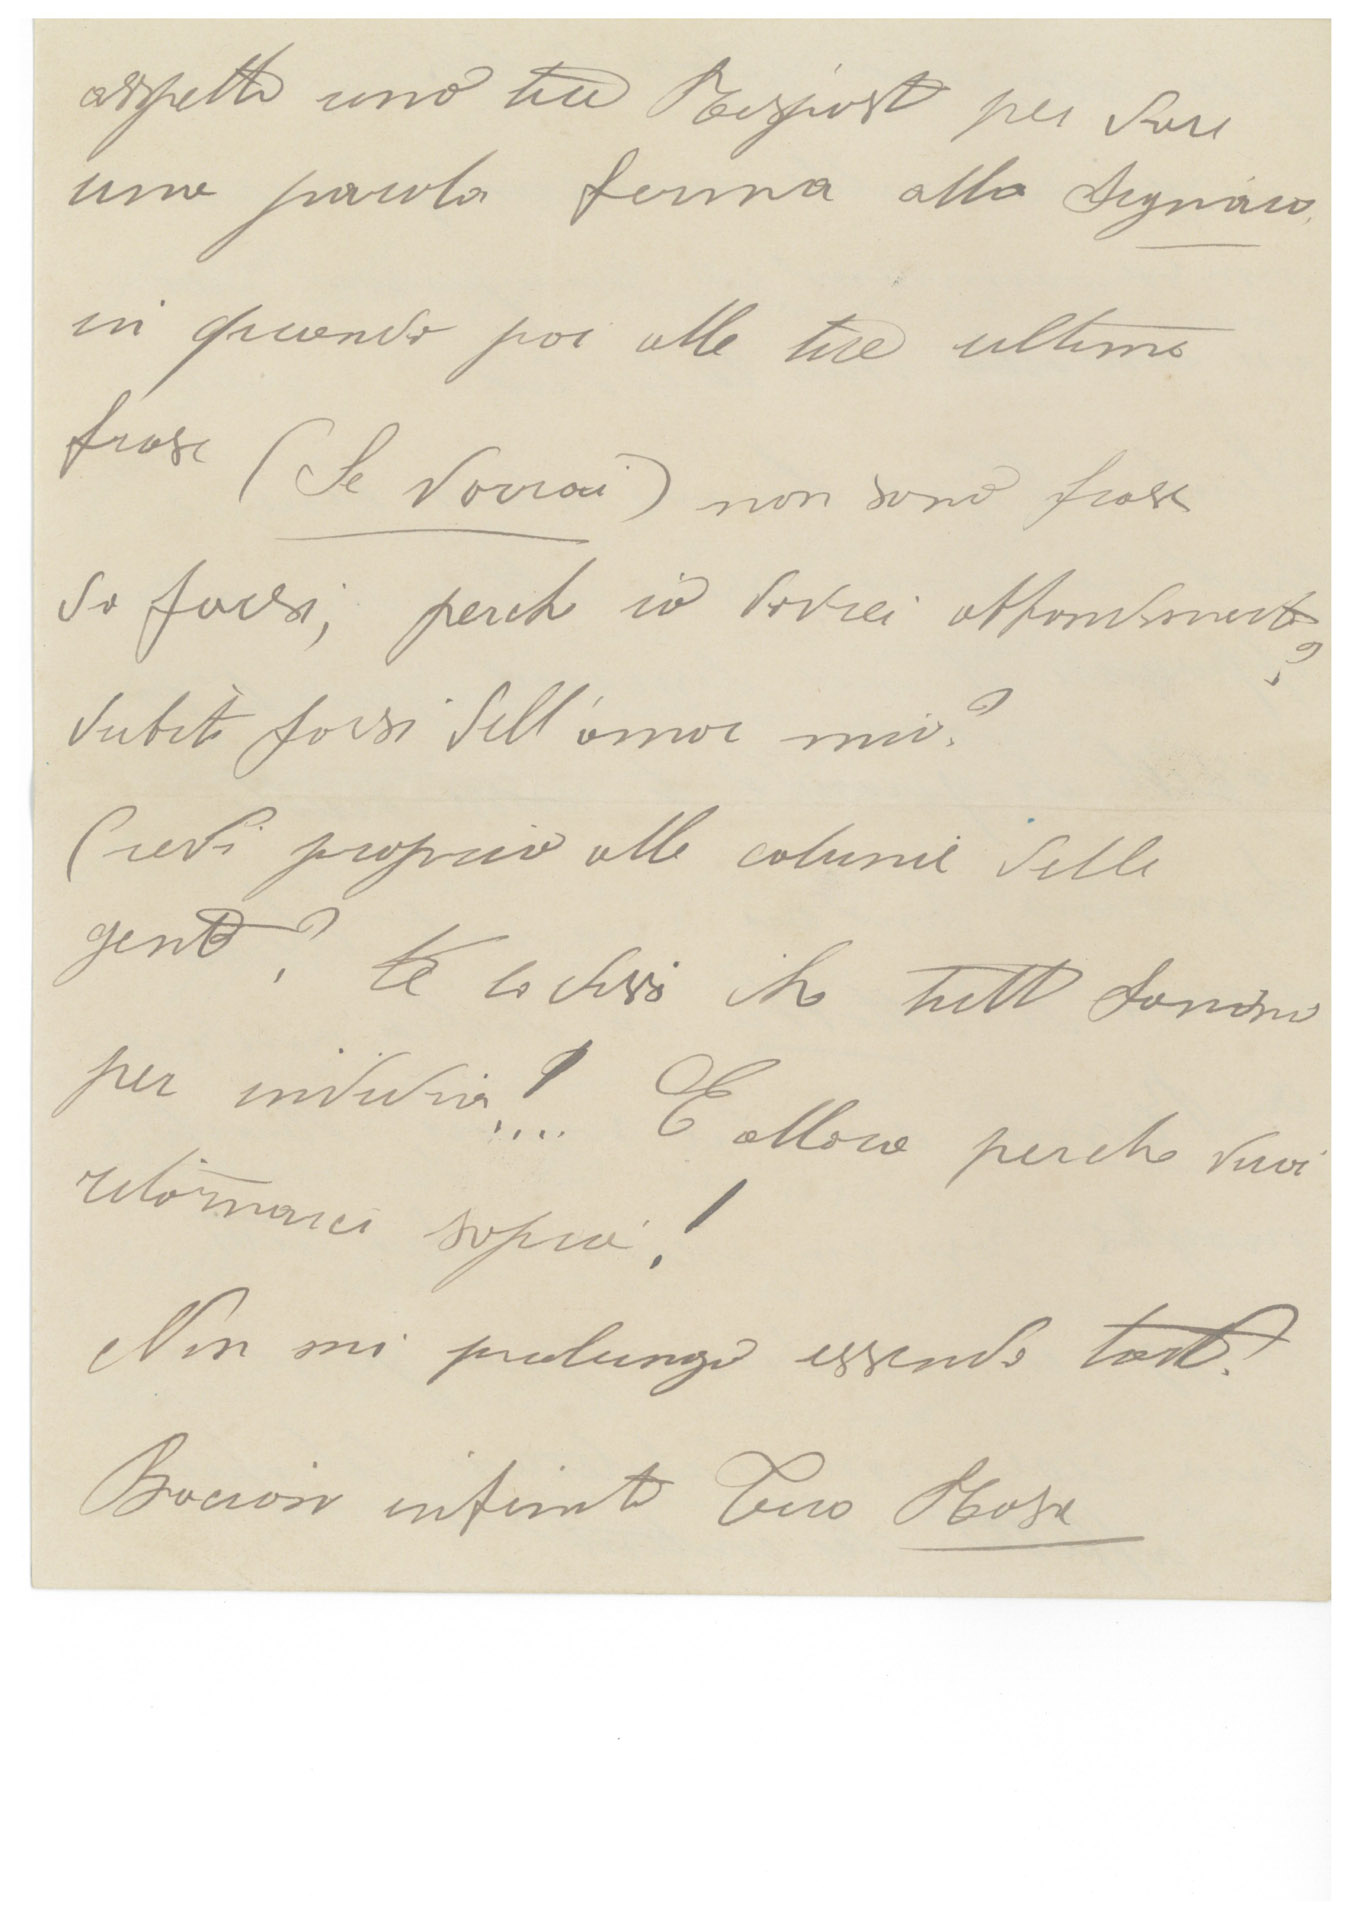 asspetto una tua Rispost per dare
una parola ferma alla Signiora.
in quando poi alle tue ultime
frase (Se Vorrai) non sono frase
da farsi, perche io dovrei
?
dubiti forsi dell'amor mio?
Credi proprio alle calunie delle
gente? te lo dissi che tutt
per invidia!.... E allora perche vuoi
ritornarci sopra!
Non mi prolungo essendo tardi.
Bacioni infiniti Tua Rosa